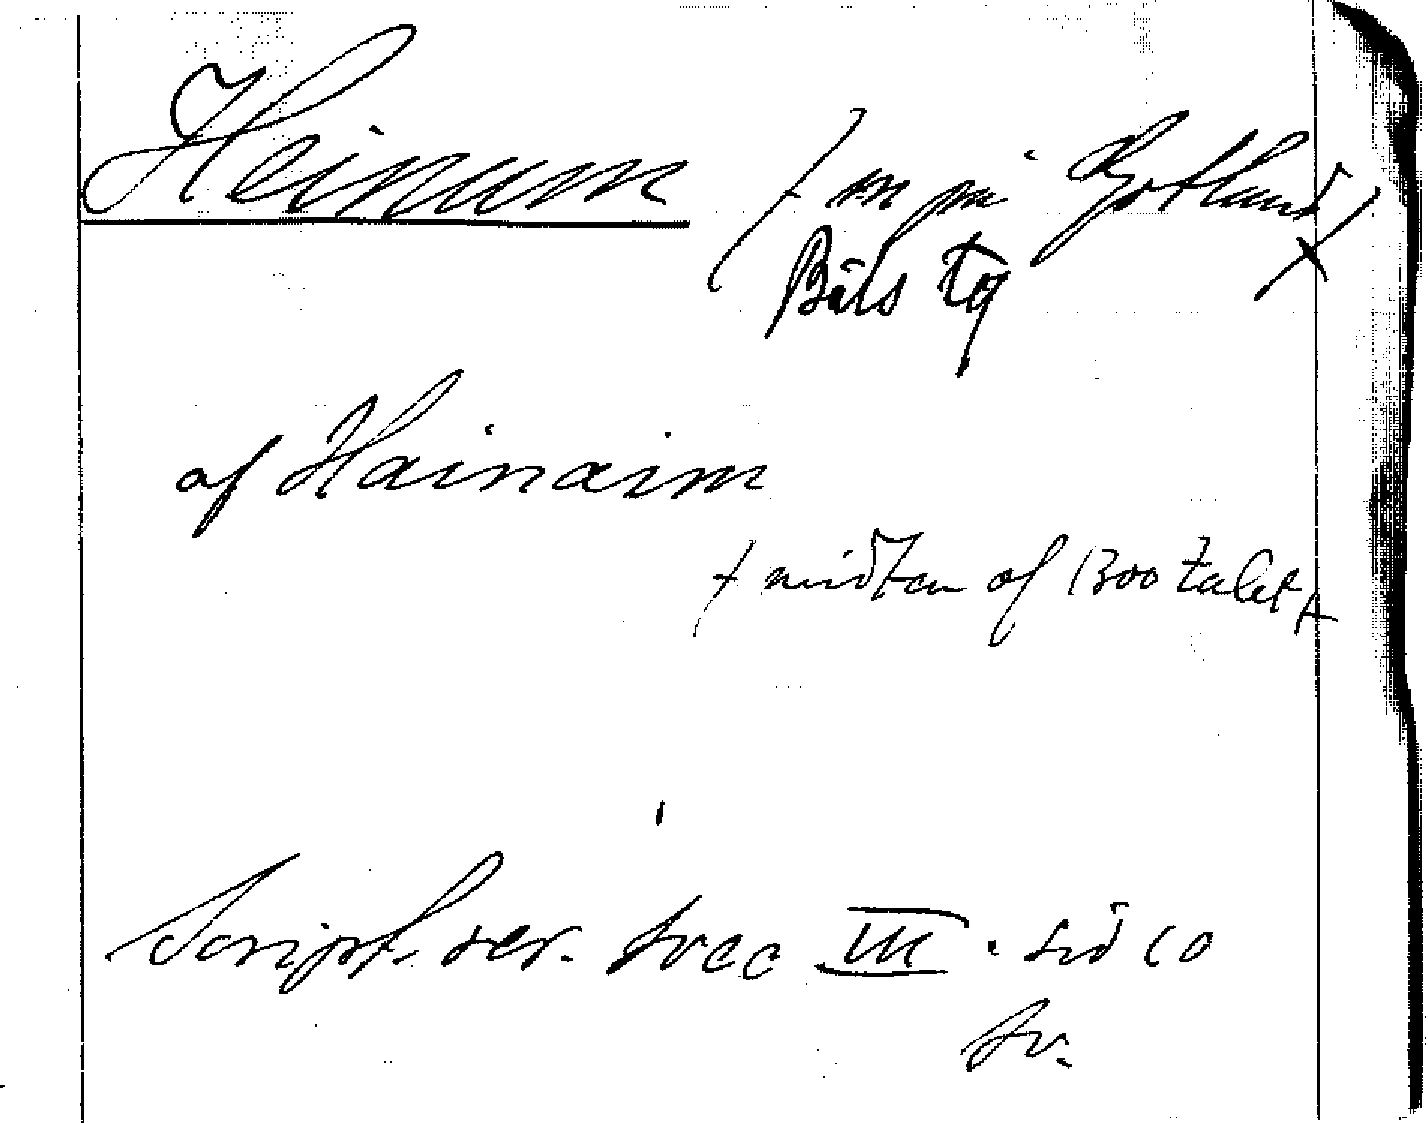 Heinum (sn på Gotland)
Bäls tg
af Hainaim
(midten af 1300 talet)
Script. rer. svec III. sid 10
Sv.